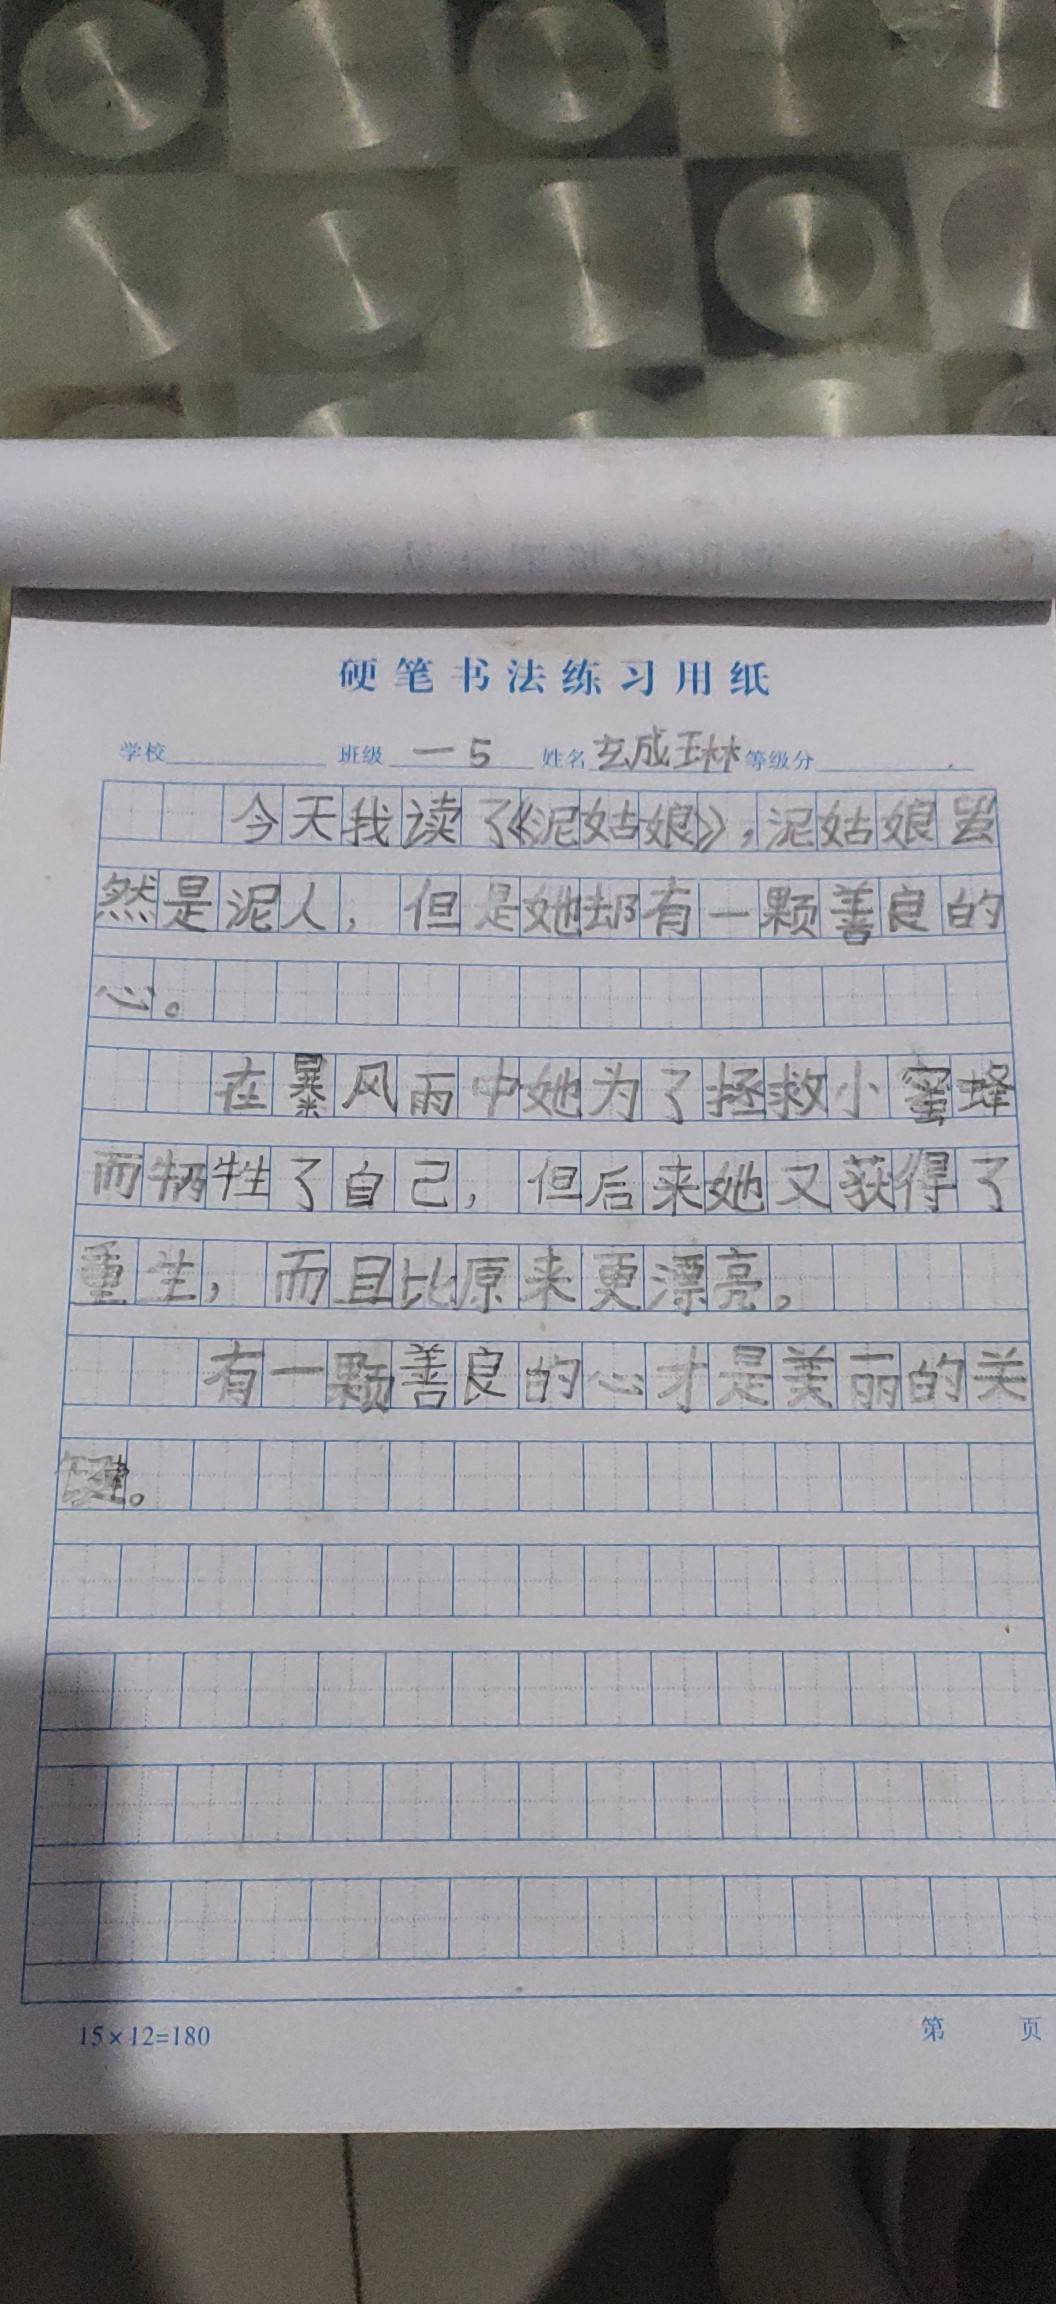 硬笔书法练习用纸
学校 班级 一5 姓名 玄成琳 等级分
今天我读了《泥姑娘》，泥姑娘虽
然是泥人，但是她却有一颗善良的
心。
在暴风雨中她为了拯救小蜜蜂
而牺牲了自己，但后来她又获得了
重生，而且比原来更漂亮。
有一颗善良的心才是美丽的关
键。
15×12=180
第 页